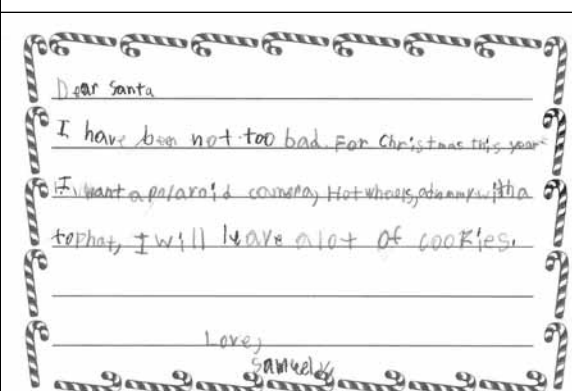 Dear Santa
I have been not too bad. For Christmas this year
I want a polaroid camera, Hot wheels, a dummy with a
tophat, I will leave alot of cookies.
Love,
Samuel